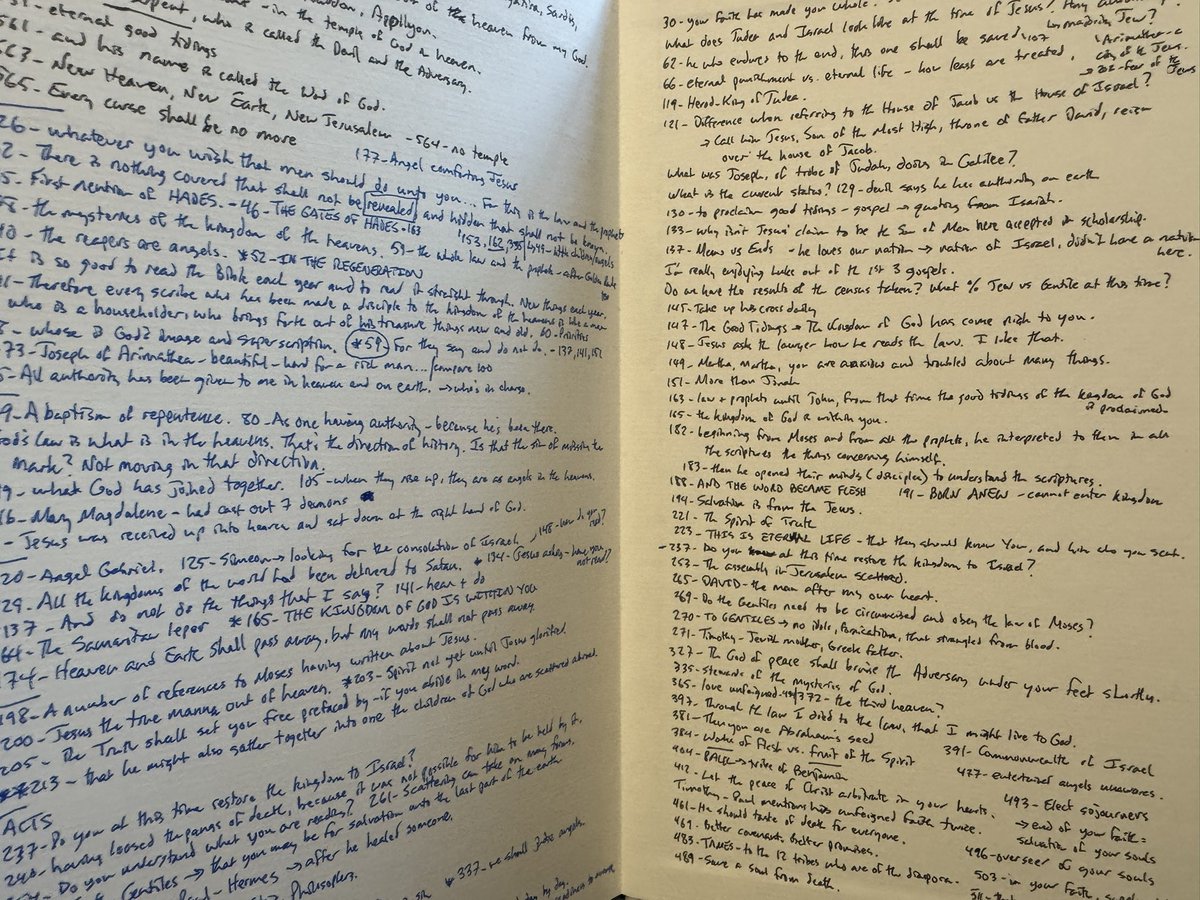 heaven from my God.
in the temple of God in heaven.
serpent, who is called the Devil and the Adversary.
eternal good tidings
561- and his name is called the Word of God.
563- New Heaven, New Earth, New Jerusalem - 564- no temple
565- Every curse shall be no more
177- Angel comforting Jesus
26- whatever you wish that men should do unto you... For this is the law and the prophets
There is nothing covered that shall not be revealed, and hidden that shall not be known.
First mention of HADES. - 46- THE GATES OF HADES - 163
the mysteries of the kingdom of the heavens. 59- the whole law and the prophets
the reapers are angels. *52- IN THE REGENERATION
It is so good to read the Bible each year and to read it straight through. New things each year.
Therefore every scribe who has been made a disciple to the kingdom of the heavens is like a man
who is a householder, who brings forth out of his treasure things new and old. 60- Priorities
whose is God's image and superscription. *59- For they say and do not do. - 137, 141, 152
73- Joseph of Arimathea - beautiful - hard for a rich man... /compare 100
All authority has been given to me in heaven and on earth. → who's in charge.
A baptism of repentence. 80- As one having authority - because he's been there.
God's law is what is in the heavens. That's the direction of history. Is that the sin of missing the
mark? Not moving in that direction.
what God has joined together. 105- when they rise up, they are as angels in the heavens.
Mary Magdalene - had cast out 7 demons
- Jesus was received up into heaven and sat down at the right hand of God.
120- Angel Gabriel. 125- Simeon → looking for the consolation of Israel
129- All the kingdoms of the world had been delivered to Satan. * 134- (Jesus asks - have you not read?
137- And do not do the things that I say? 141- hear + do
The Samaritan leper *165- THE KINGDOM OF GOD IS WITHIN YOU
174- Heaven and Earth shall pass away, but my words shall not pass away
198- A number of references to Moses having written about Jesus.
200- Jesus the true manna out of heaven. *203- Spirit not yet until Jesus glorified.
205- The Truth shall set you free prefaced by - if you abide in my word.
**213- that he might also gather together into one the children of God who are scattered abroad.
ACTS
237- Do you at this time restore the kingdom to Israel?
240- having loosed the pangs of death, because it was not possible for him to be held by it.
Do you understand what you are reading? 261- Scattering can take on many forms.
Gentiles → that you may be for salvation unto the last part of the earth
Hermes → after he healed someone.
Philosophers.
337- we should judge angels.
30- your faith has made you whole.
What does Judea and Israel look like at the time of Jesus?
62- he who endures to the end, this one shall be saved 107
66- eternal punishment vs. eternal life - how least are treated.
Arimathea - a city of the Jews.
fear of the Jews
119- Herod - King of Judea.
121- Difference when referring to the House of Jacob vs the House of Israel?
→ Call him Jesus, Son of the Most High, throne of Father David, reign
over the house of Jacob.
What was Joseph, of tribe of Judah, doing in Galilee?
What is the current status? (129- devil says he has authority on earth
130- to proclaim good tidings - gospel → quoting from Isaiah.
133- why isn't Jesus' claim to be the Son of Man here accepted in scholarship.
137- Means vs Ends - he loves our nation → nation of Israel, didn't have a nation
here.
I'm really enjoying Luke out of the 1st 3 gospels.
Do we have the results of the census taken? What % Jew vs Gentile at this time?
145- Take up his cross daily
147- The Good Tidings → The Kingdom of God has come nigh to you.
148- Jesus ask the lawyer how he reads the law. I like that.
149- Martha, Martha, you are anxious and troubled about many things.
151- More than Jonah
163- law + prophets until John, from that time the good tidings of the kingdom of God
is proclaimed
165- the kingdom of God is within you.
182- beginning from Moses and from all the prophets, he interpreted to them in all
the scriptures the things concerning himself.
183- then he opened their minds (disciples) to understand the scriptures.
188- AND THE WORD BECAME FLESH 191- BORN ANEW - cannot enter kingdom
194- Salvation is from the Jews.
221- The Spirit of Truth
223- THIS IS ETERNAL LIFE - that they should know You, and him who you sent.
-237- Do you at this time restore the kingdom to Israel?
253- The assembly in Jerusalem scattered.
265- DAVID - the man after my own heart.
269- Do the Gentiles need to be circumcised and obey the law of Moses?
270- TO GENTILES → no idols, fornication, that strangled from blood.
271- Timothy - Jewish mother, Greek father.
327- The God of peace shall bruise the Adversary under your feet shortly.
335- stewards of the mysteries of God.
365- love unfeigned 372- the third heaven?
397- Through the law I died to the law, that I might live to God.
381- Then you are Abraham's seed
384- Works of Flesh vs. fruit of the Spirit
391- Commonwealth of Israel
404- PAUL → tribe of Benjamin
477- entertained angels unawares.
412- Let the peace of Christ arbitrate in your hearts.
493- Elect sojourners
Timothy - Paul mentions his unfeigned faith twice.
→ end of your faith =
salvation of your souls
461- He should taste of death for everyone.
469- Better covenant, better promises.
496- overseer of your souls
483- JAMES - to the 12 tribes who are of the diaspora.
503- in your faith,
489- Save a soul from death.